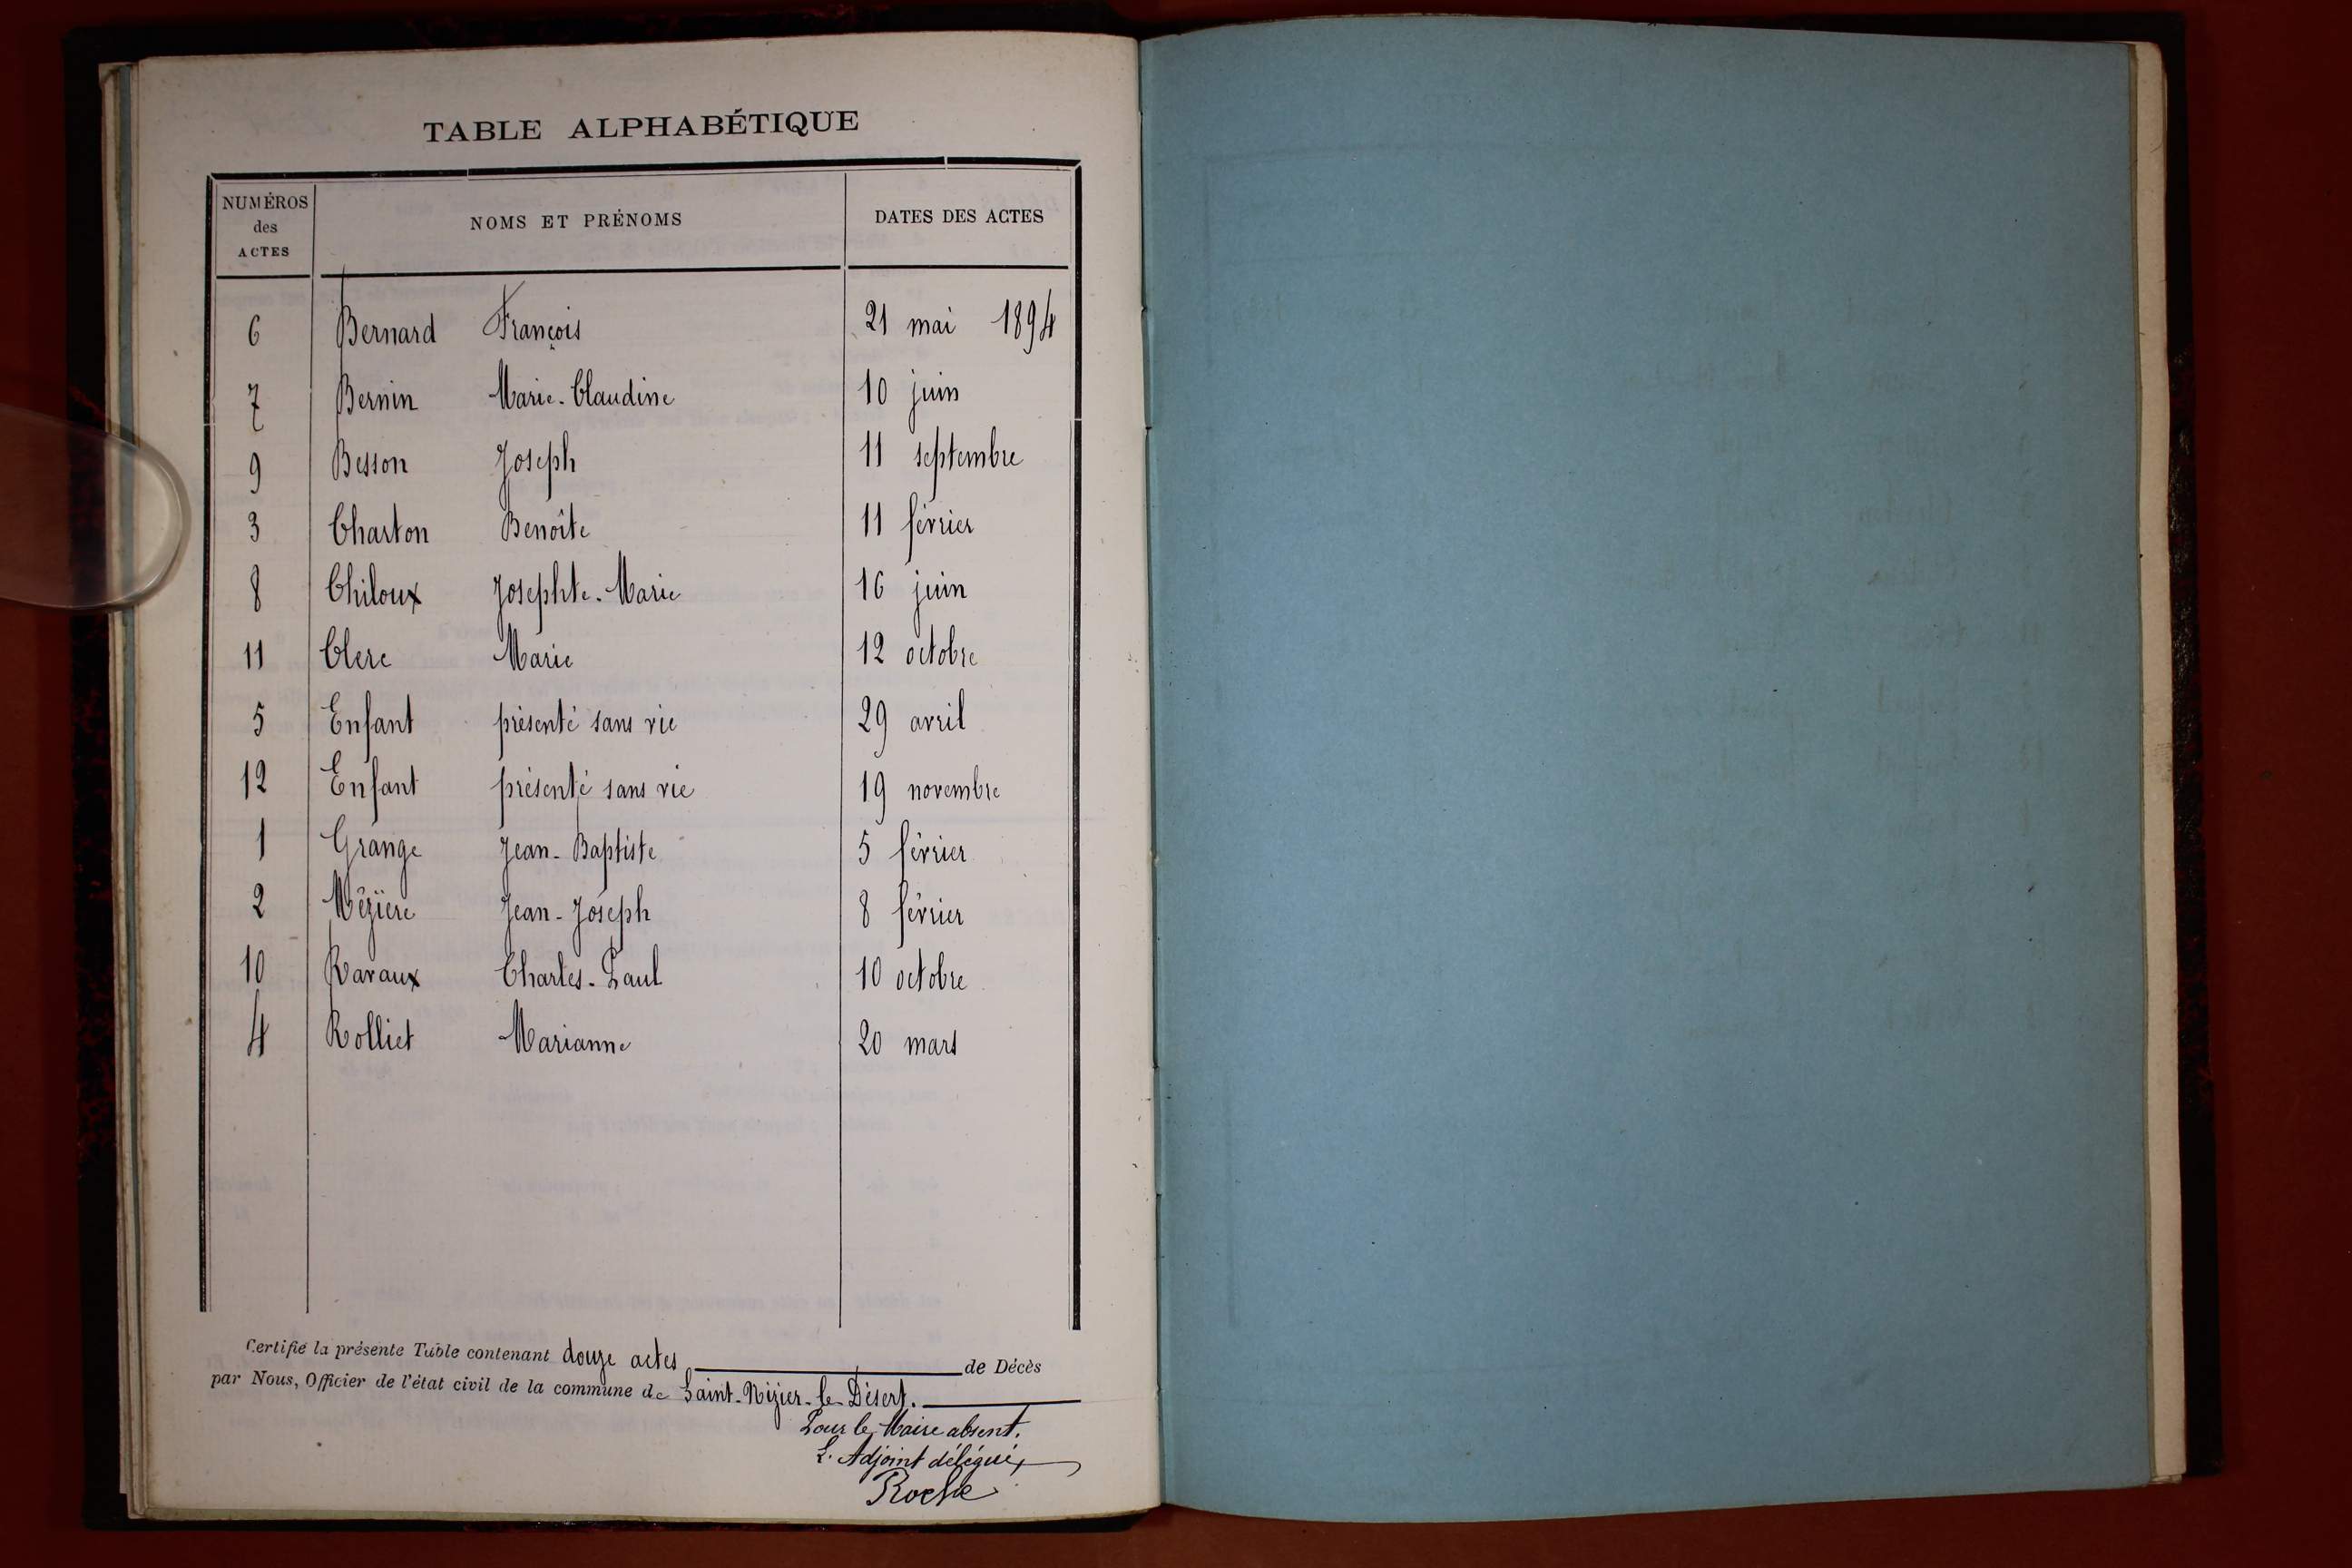 TABLE ALPHABÉTIQUE
NUMÉROS des ACTES NOMS ET PRÉNOMS DATES DES ACTES
6 Bernard François 21 mai 1894
7 Bernin Marie-Claudine 10 juin
9 Besson Joseph 11 septembre
3 Charton Benoîte 11 février
8 Chiloux Josephte-Marie 16 juin
11 Clerc Marie 12 octobre
5 Enfant présenté sans vie 29 avril
12 Enfant présenté sans vie 19 novembre
1 Grange Jean-Baptiste 5 février
2 Mézière Jean-Joseph 8 février
10 Ravaux Charles-Paul 10 octobre
4 Rolliet Marianne 20 mars
Certifié la présente Table contenant douze actes de Décès
par Nous, Officier de l'état civil de la commune de Saint-Nizier-le-Désert.
Pour le Maire absent,
L'Adjoint délégué,
Roche